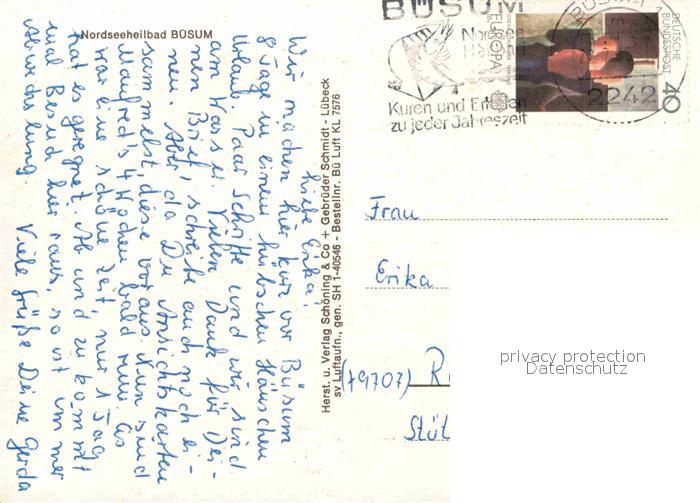 Nordseeheilbad BÜSUM
Liebe Erika,
Wir machen hier kurz vor Büsum
8 Tage in einem hübschen Häuschen
Urlaub. Paar Schritte und wir sind
am Wasser. Vielen Dank für Dei-
nen Brief, schreibe auch noch ei-
nen. Aber da Du Ansichtskarten
sammelst, diese voraus. Nun sind
Manfred's 4 Wochen bald rum. Es
war eine schöne Zeit, nur 1 Tag
hat es geregnet. Ab und zu kommt
mal Besuch hier raus, so ist immer
Abwechslung. Viele Grüße Deine Gerda
Herst. u. Verlag Schöning & Co + Gebrüder Schmidt - Lübeck
sv Luftaufn., gen: SH 1-40546 - Bestellnr. Bü Luft KL 7576
BÜSUM
Nordsee
Kuren und
zu jeder Jahreszeit
EUROPA
DEUTSCHE
BUNDESPOST
40
BÜSUM
2242
Frau
Erika
privacy protection
Datenschutz